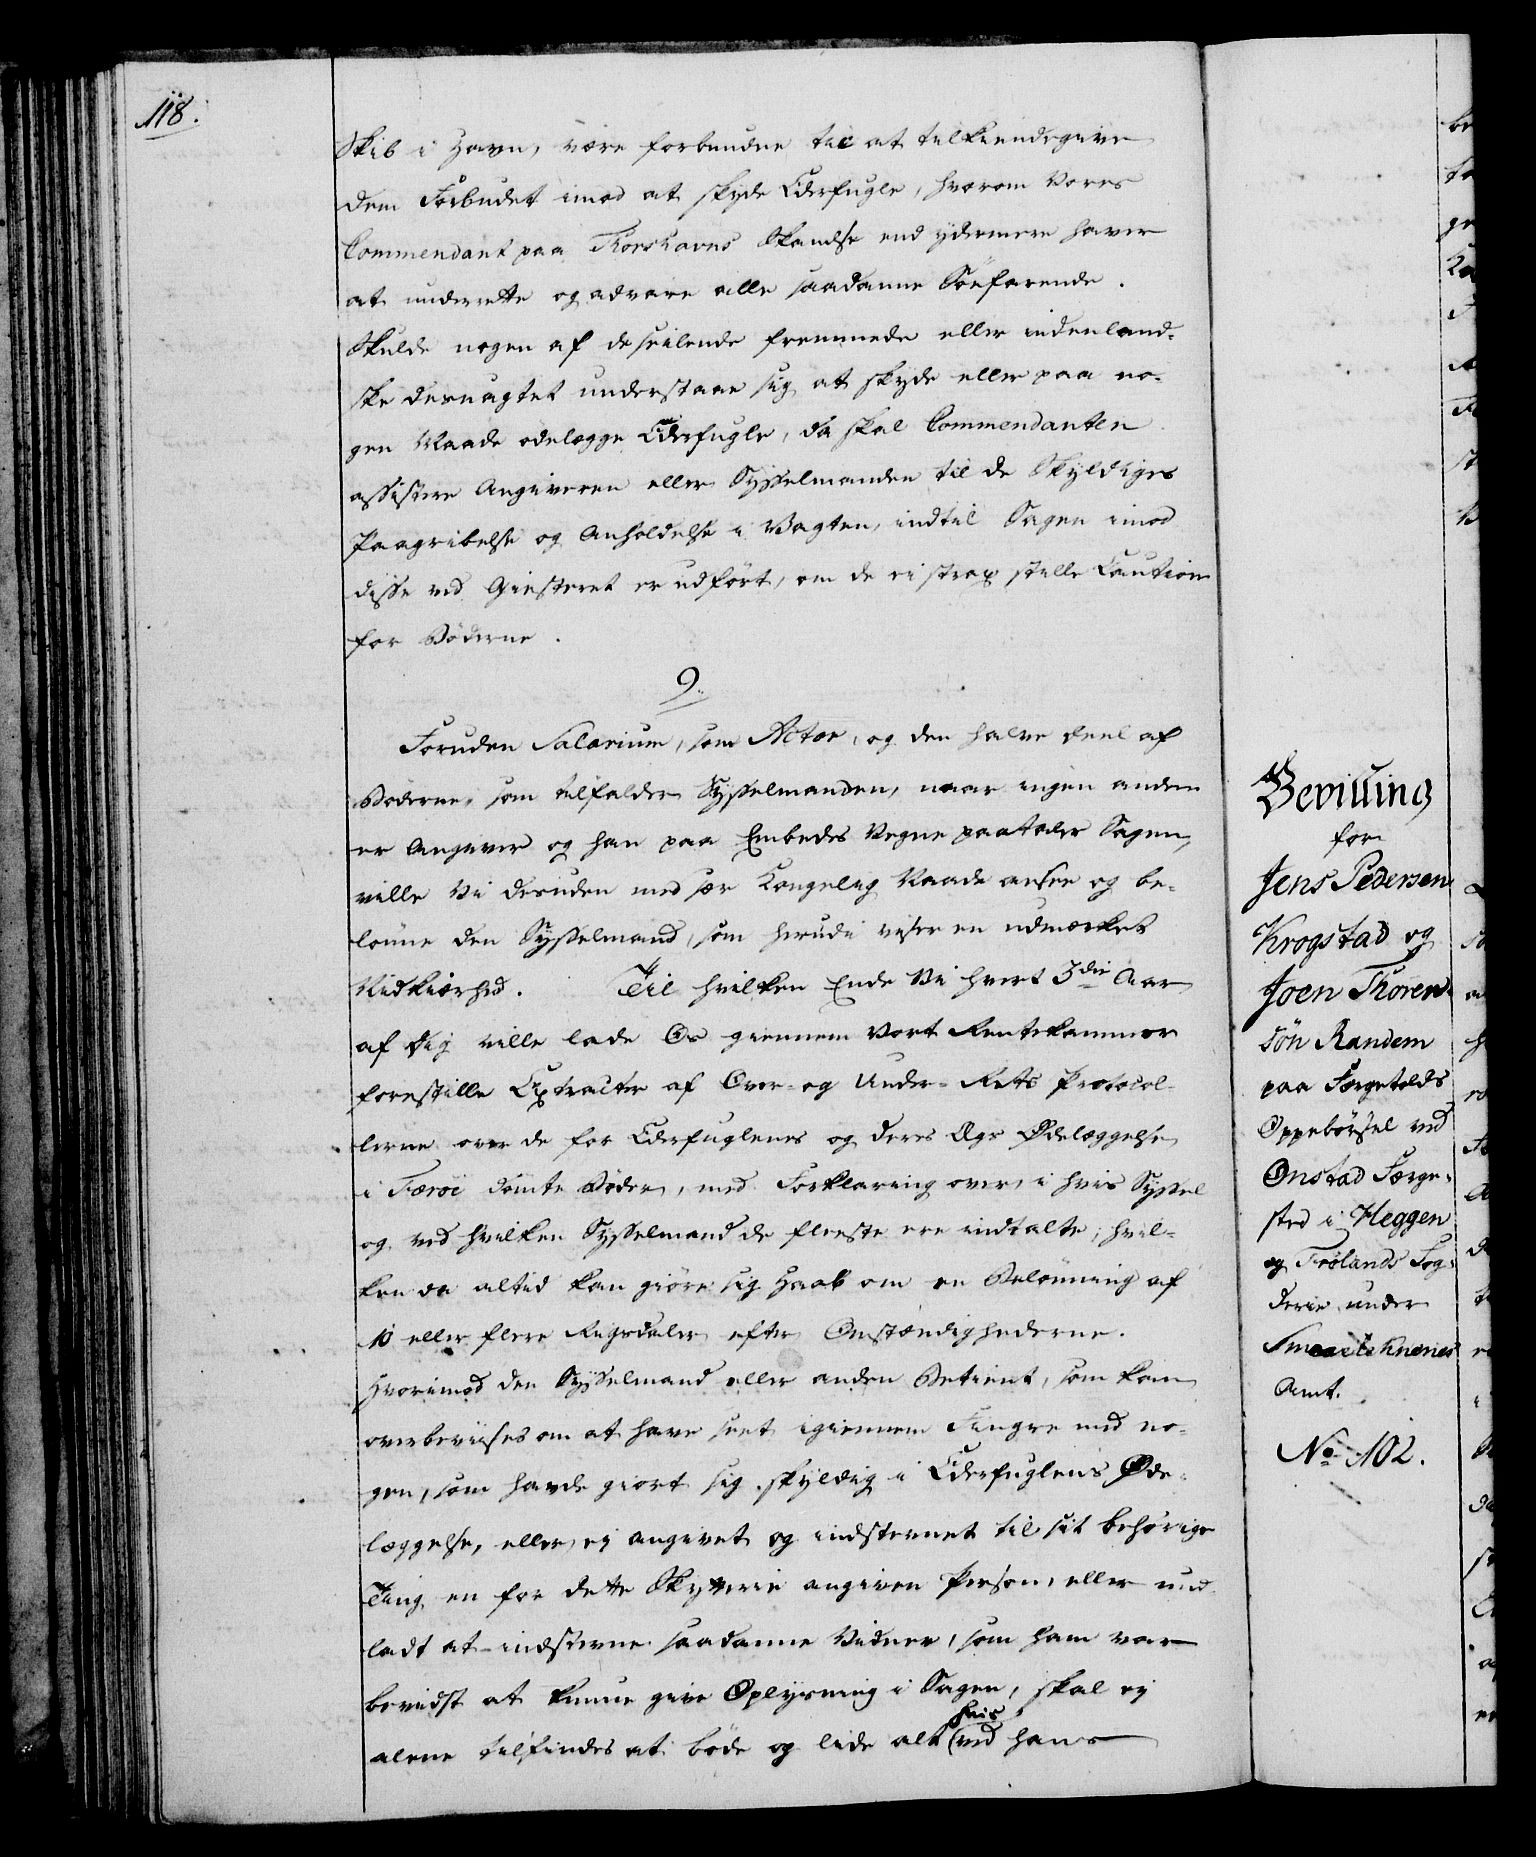 118.
Skib i Havn, være forbunden til at tilkiendegive
dem Forbudet imod at skyde Ederfugle, hvorom Vores
Commendant paa Thorshavns Skandse end ydermere haver
at underrette og advare alle saadanne Söefarende.
Skulde nogen af de seilende fremmede eller indenland-
ske desuagtet understaae sig at skyde eller paa no-
gen Maade ödelægge Ederfugle, da skal Commendanten
assistere Angiveren eller Sysselmanden til de Skyldiges
Paagribelse og Anholdelse i Vagten, indtil Sagen imod
disse ved Giesteret er udfört, om de ei strax stille Caution
for Böderne.
9.
Foruden Salarium, som Actor, og den halve Deel af
Böderne, som tilfalder Sysselmanden, naar ingen anden
er Angiver og han paa Embeds Vegne paataler Sagen,
ville Vi desuden med sær Kongelig Naade ansee og be-
lönne den Sysselmand, som herudi viser en udmærket
Nidkiærhed. Til hvilken Ende Vi hvert 3die Aar
af dig ville lade Os giennem Vort Rentekammer
forestille Extracter af Over- og Under-Rets Protocol-
lerne over de for Ederfuglenes og deres Ægs Ödelæggelse
i Færöe dömte Böder, med Forklaring over, i hvis Syssel
og ved hvilken Sysselmand de fleeste ere indtalte; hvil-
ken da altid kan giöre sig Haab om en Belönning af
10 eller flere Rigsdaler efter Omstændighederne.
Hvorimod den Sysselmand eller anden Betient, som kan
overbeviises om at have seet igiennem Fingre med no-
gen, som havde giort sig skyldig i Ederfuglens Öde-
læggelse, eller ej angivet og indstevnet til sit behörige
Ting en for dette Skytterie angiven Person, eller und-
ladt at indstevne saadanne Vidner, som ham var
bevidst at kunne give Oplysning i Sagen, skal ej
alene tilfindes at böde og lide alt hvis ved hans
Bevilling
for
Jens Pedersen
Krogstad og
Joen Thoren-
sön Randem
paa Færgetolds
Oppebörsel ved
Onstad Færge-
sted i Heggen
og Frölands Fog-
derie under
Smaalehnenes
Amt.
No 102.